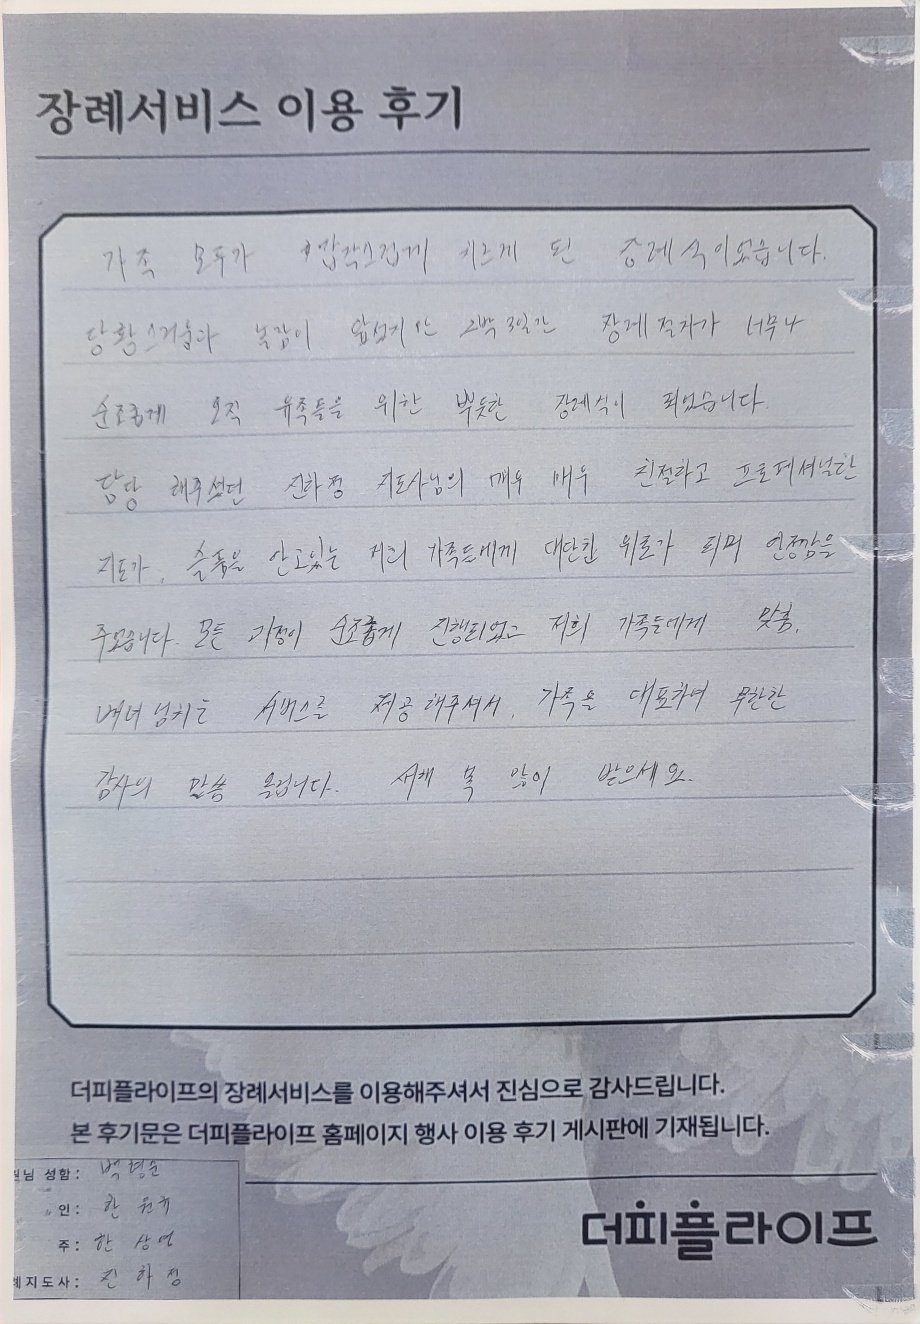 장례서비스 이용 후기
가족 모두가 갑작스럽게 치르게 된 장례식이었습니다.
당황스러움과 놀람이 앞섰지만 2박 3일간 장례절차가 너무나
순조롭게 오직 유족들을 위한 뿌듯한 장례식이 되었습니다.
담당 해주셨던 진하정 지도사님의 매우 매우 친절하고 프로페셔널한
지도가, 슬픔을 안고있는 저희 가족들에게 대단한 위로가 되며 안정감을
주었습니다. 모든 과정이 순조롭게 진행되었고 저희 가족들에게 맞춤,
서비스를 제공해주셔서, 가족을 대표하여 무한한
감사의 말씀 올립니다. 새해 복 많이 받으세요.
더피플라이프의 장례서비스를 이용해주셔서 진심으로 감사드립니다.
본 후기문은 더피플라이프 홈페이지 행사 이용 후기 게시판에 기재됩니다.
원님 성함: 백형순
인: 한원규
주: 한상연
례지도사: 진하정
더피플라이프